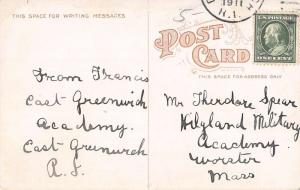 THIS SPACE FOR WRITING MESSAGES
POST CARD
THIS SPACE FOR ADDRESS ONLY
1911
R.I.
U.S. POSTAGE
ONE CENT
5
From Francis
East Greenwich
Academy.
East Greenwich
R.I.
Mr Theodore Spear
Highland Military
Academy
Worster
Mass